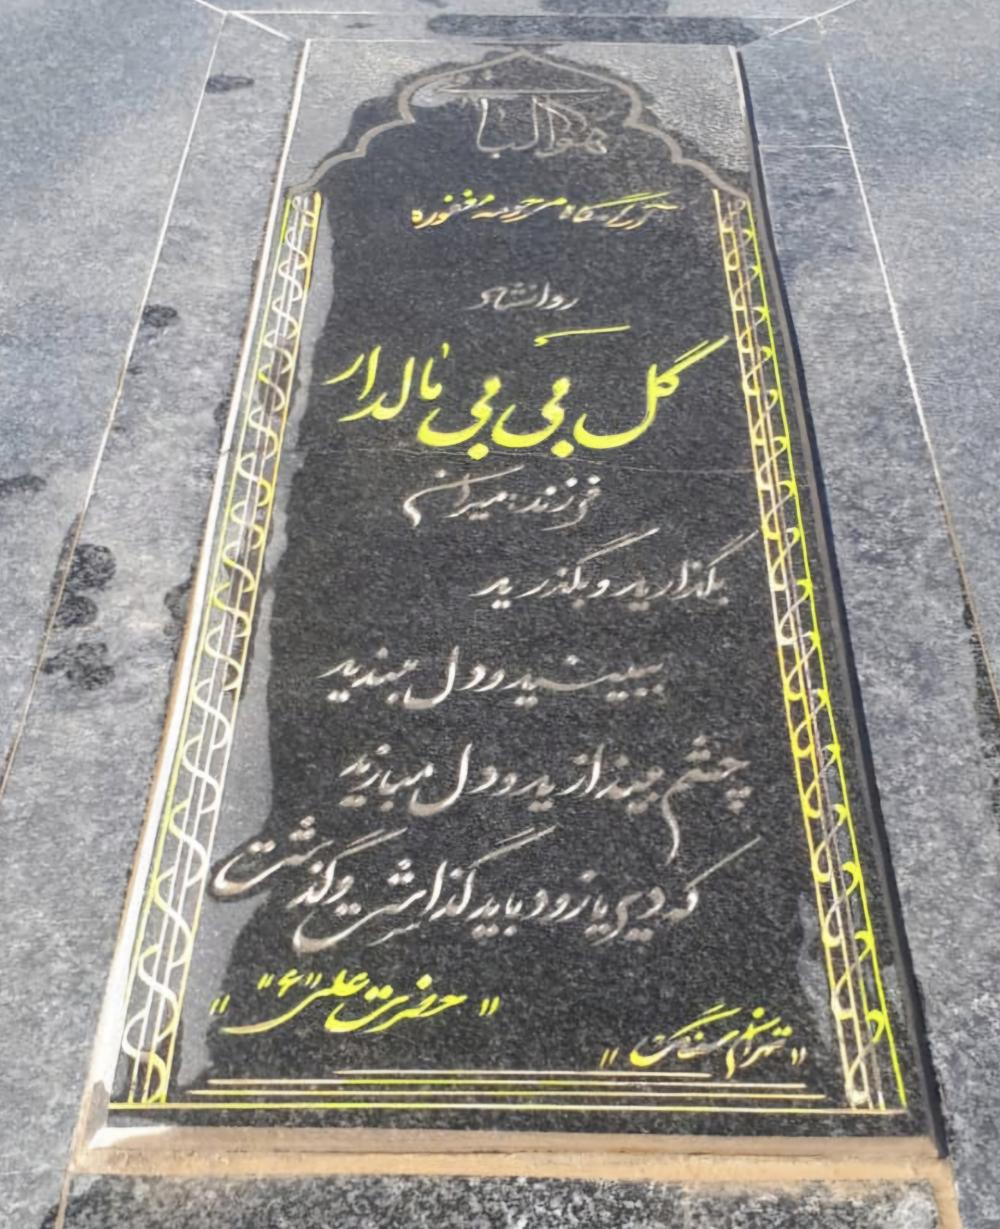 هوالباقی
آرامگاه مرحومه مغفوره
روانشاد
گل بی بی مالدار
فرزند: میران
بگذارید و بگذرید
ببینید و دل مبندید
چشم بیندازید و دل مبازید
که دیر یا زود باید گذاشت و گذشت
"حضرت علی "ع" "
"تهران سنگ"